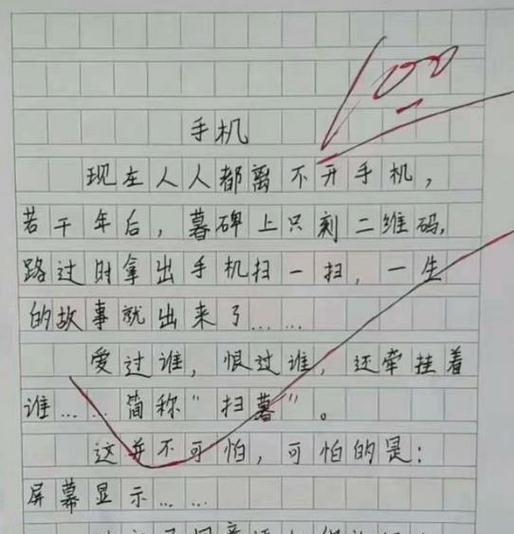 100
手机
现在人人都离不开手机，
若干年后，墓碑上只刻二维码，
路过时拿出手机扫一扫，一生
的故事就出来了……
爱过谁，恨过谁，还牵挂着
谁……简称“扫墓”。
这并不可怕，可怕的是：
屏幕显示……